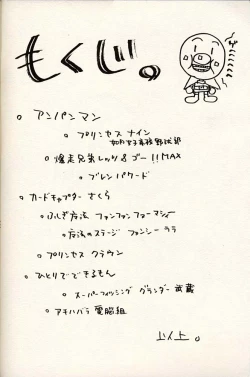 もくじ。
アンパンマン
プリンセス ナイン
如月女子高校野球部
爆走兄弟レッツ&ゴー!!MAX
ブレンパワード
カードキャプター さくら
ふしぎ魔法 ファンファンファーマシィー
魔法のステージ ファンシーララ
プリンセス クラウン
ひとりでできるもん
スーパーフィッシング グランダー 武蔵
アキハバラ電脳組
以上。